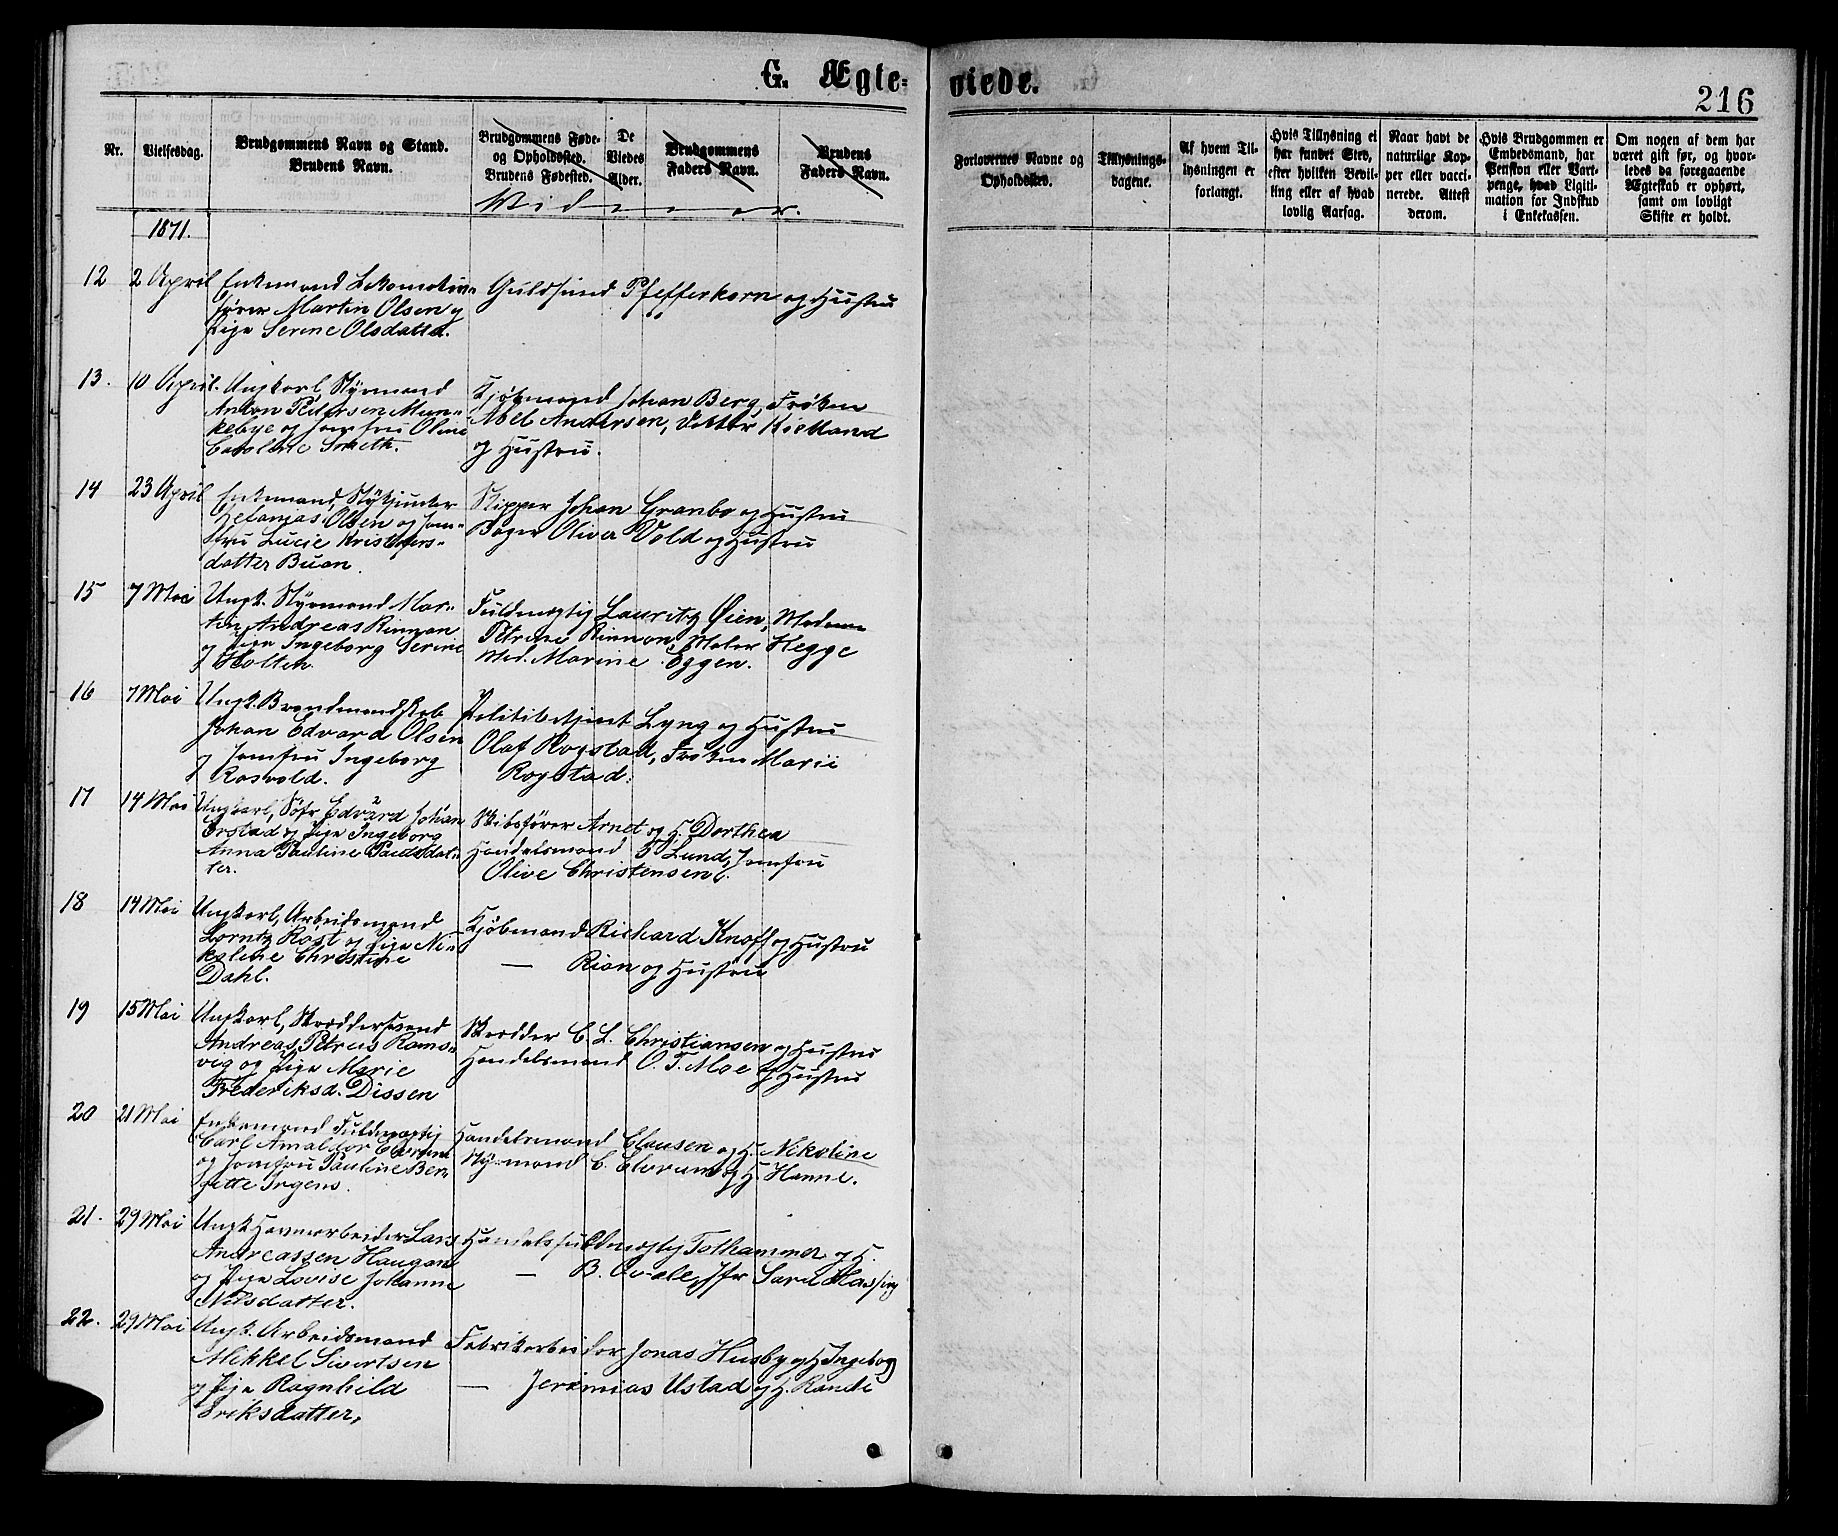 G. Ægte-
viede.
216
Nr.
Vielsesdag.
Brudgommens Navn og Stand.
Brudens Navn.
Brudgommens Føde-
og Opholdssted.
Brudens Fødested.
De
Viedes
Alder.
Brudgommens
Faders Navn.
Brudens
Faders Navn.
Forlovernes Navne og
Opholdssted.
Tillysnings-
dagene.
Af hvem Til-
lysningen er
forlangt.
Hvis Tillysning ei
har fundet Sted,
efter hvilken Bevil-
ling eller af hvad
lovlig Aarsag.
Naar havt de
naturlige Kop-
per eller vacci-
nerede. Attest
derom.
Hvis Brudgommen er
Embedsmand, har
Pension eller Vart-
penge, hvad Ligiti-
mation for Indskud
i Enkekassen.
Om nogen af dem har
været gift før, og hvor-
ledes da foregaaende
Ægteskab er ophørt,
samt om lovligt
Skifte er holdt.
1871.
12
2 April
Enkemand Lokomotiv-
fører Martin Olsen og
Pige Serine Olsdatter.
Guldsmed Pfefferkorn og Hustru
13.
10 April.
Ungkarl, Styrmand
Anton Pedersen Mun-
kebye og Jomfru Oline
Caroline Smeth.
Kjøbmand Johan Berg, Frøken
Abel Andersen, Doktor Kielland
og Hustru.
14
23 April
Enkemand, Stykjunker
Zefanias Olsen og Jom-
fru Lucie Kristofers-
datter Buan.
Skipper Johan Granbo og Hustru
Bager Oliver Vold og Hustru
15
7 Mai
Ungk. Styrmand Mar-
tin Andreas Rinnan
og Pige Ingeborg Serine
Holten.
Fuldmægtig Lauritz Øien, Madame
Petrine Rinnan, Maler Hegge
Mad. Marine Eggen.
16
7 Mai
Ungk. Brandmandskab
Johan Edvard Olsen
og Jomfru Ingeborg
Rosvold.
Politibetjent Lyng og Hustru
Olaf Rogstad, Frøken Marie
Rogstad.
17
14 Mai
Ungkarl, Søfr Edvard Johan
Erstad og Pige Ingeborg
Anna Pauline Paulsdat-
ter.
Skibsfører Arnet og H. Dorthea
Handelsmand Lund, Jomfru
Olive Christensen.
18
14 Mai
Ungkarl, Arbeidsmand
Lorntz Rost og Pige Ni-
koline Christine
Dahl.
Kjøbmand Richard Knoff og Hustru
— Rian og Hustru
19
15 Mai
Ungkarl, Skræddersvend
Andreas Petrus Rams-
vig og Pige Marie
Frederiksd. Dissen
Skrædder C. L. Christiansen og Hustru
Handelsmand O. T. Moe og Hustru
20
21 Mai
Enkemand Fuldmægtig
Carl Amaldor
og Jomfru Pauline Ber-
gette Irgens.
Handelsmand Clausen og H. Nikoline
Styrmand C. og H. Hanne.
21.
29 Mai
Ungk Havnearbeider Lars
Andreassen Haugan
og Pige Lovise Johanne
Nilsdatter.
Handelsfuldmægtig og H.
— B. Jfr Sara Hassing
22.
29 Mai
Ungk. Arbeidsmand
Mikkel Sivertsen
og Pige Ragnhild
Eriksdatter,
Fabrikarbeider Jonas Husby og H Ingeborg
— Jerimias Ustad og H. Randi